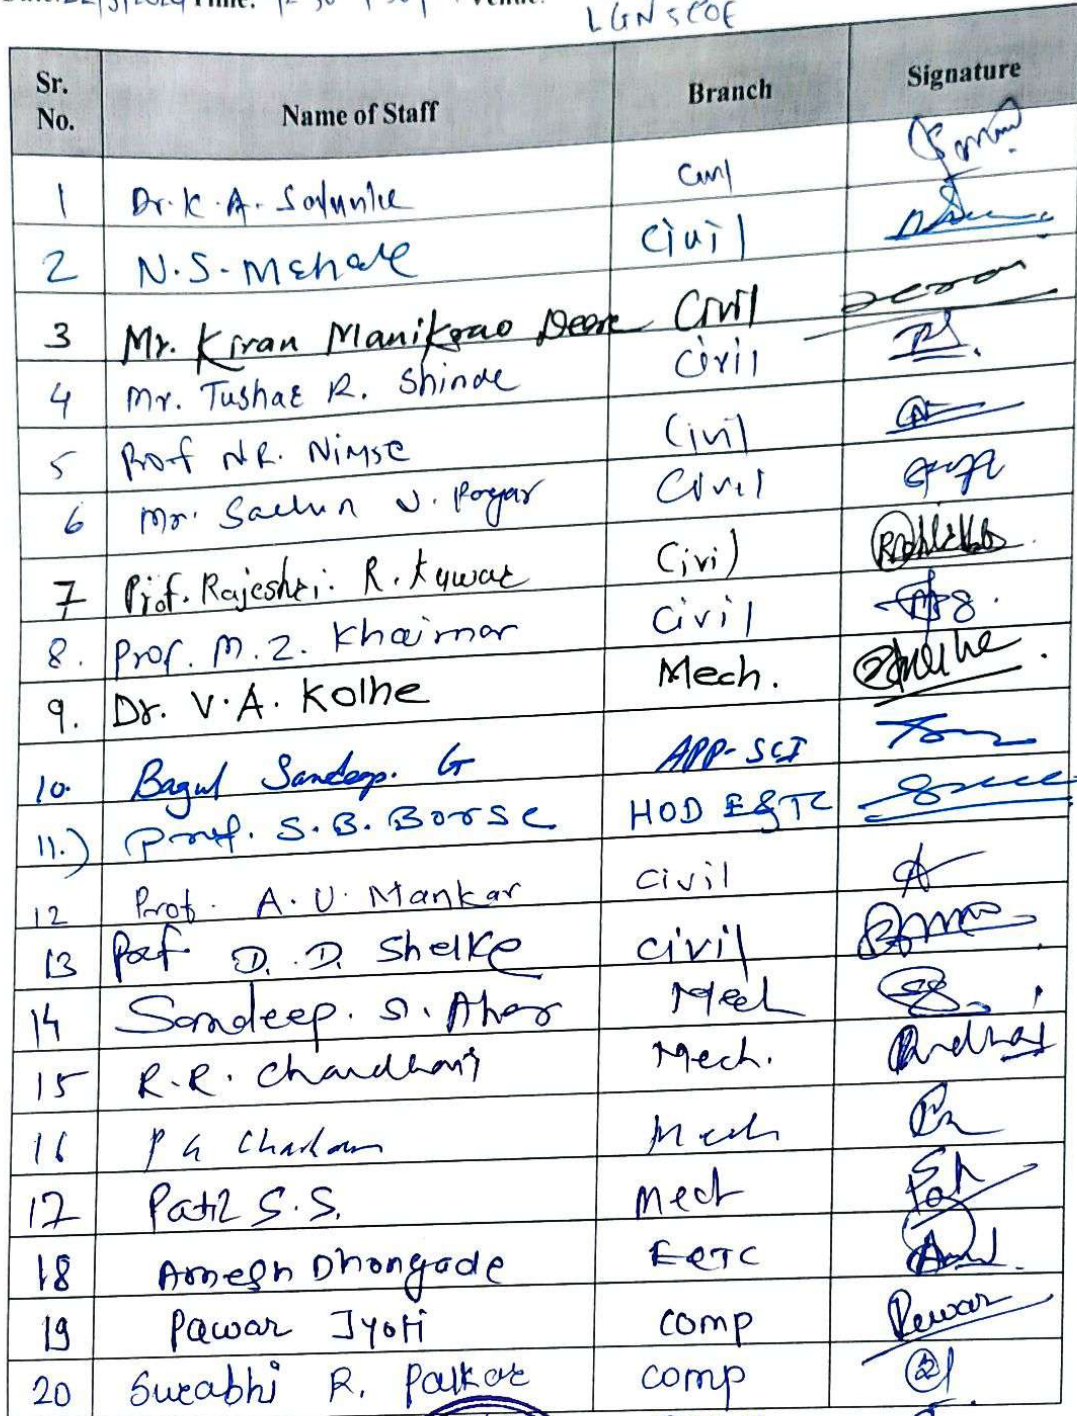 Time: Venue:
LGNSCOE
Sr. No. Name of Staff Branch Signature
1 Dr. K. A. Salunke Civil
2 N.S. Mehare Civil
3 Mr. Kiran Manikrao Deore Civil
4 Mr. Tushar R. Shinde Civil
5 Prof N.R. Nimse Civil
6 Mr. Sachin V. Pagar Civil
7 Prof. Rajeshri. R. Kuwar Civil
8. Prof. M. Z. Khairnar Civil
9. Dr. V.A. Kolhe Mech.
10. Bagul Sandeep. G APP-SCI
11.) Prof. S.B. Borse HOD E&TC
12 Prof. A.U. Mankar Civil
13 Prof D.D. Shelke Civil
14 Sandeep. S. Aher Mech
15 R.R. Chaudhari Mech.
16 P G Mech
17 Patil S.S. Mech
18 Dhongade E&TC
19 Pawar Jyoti comp Pawar
20 Surabhi R. Palkar comp